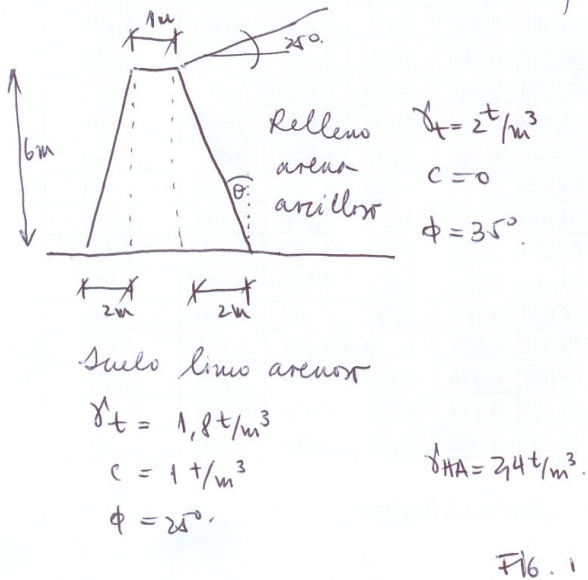 1m
25°.
6m
Relleno
arena
arcillosa
γt = 2 t/m³
c = 0
ϕ = 35°.
θ.
2m
2m
Suelo limo arenoso
γt = 1,8 t/m³
c = 1 t/m³
ϕ = 25°.
γHA = 2,4 t/m³.
FIG. 1